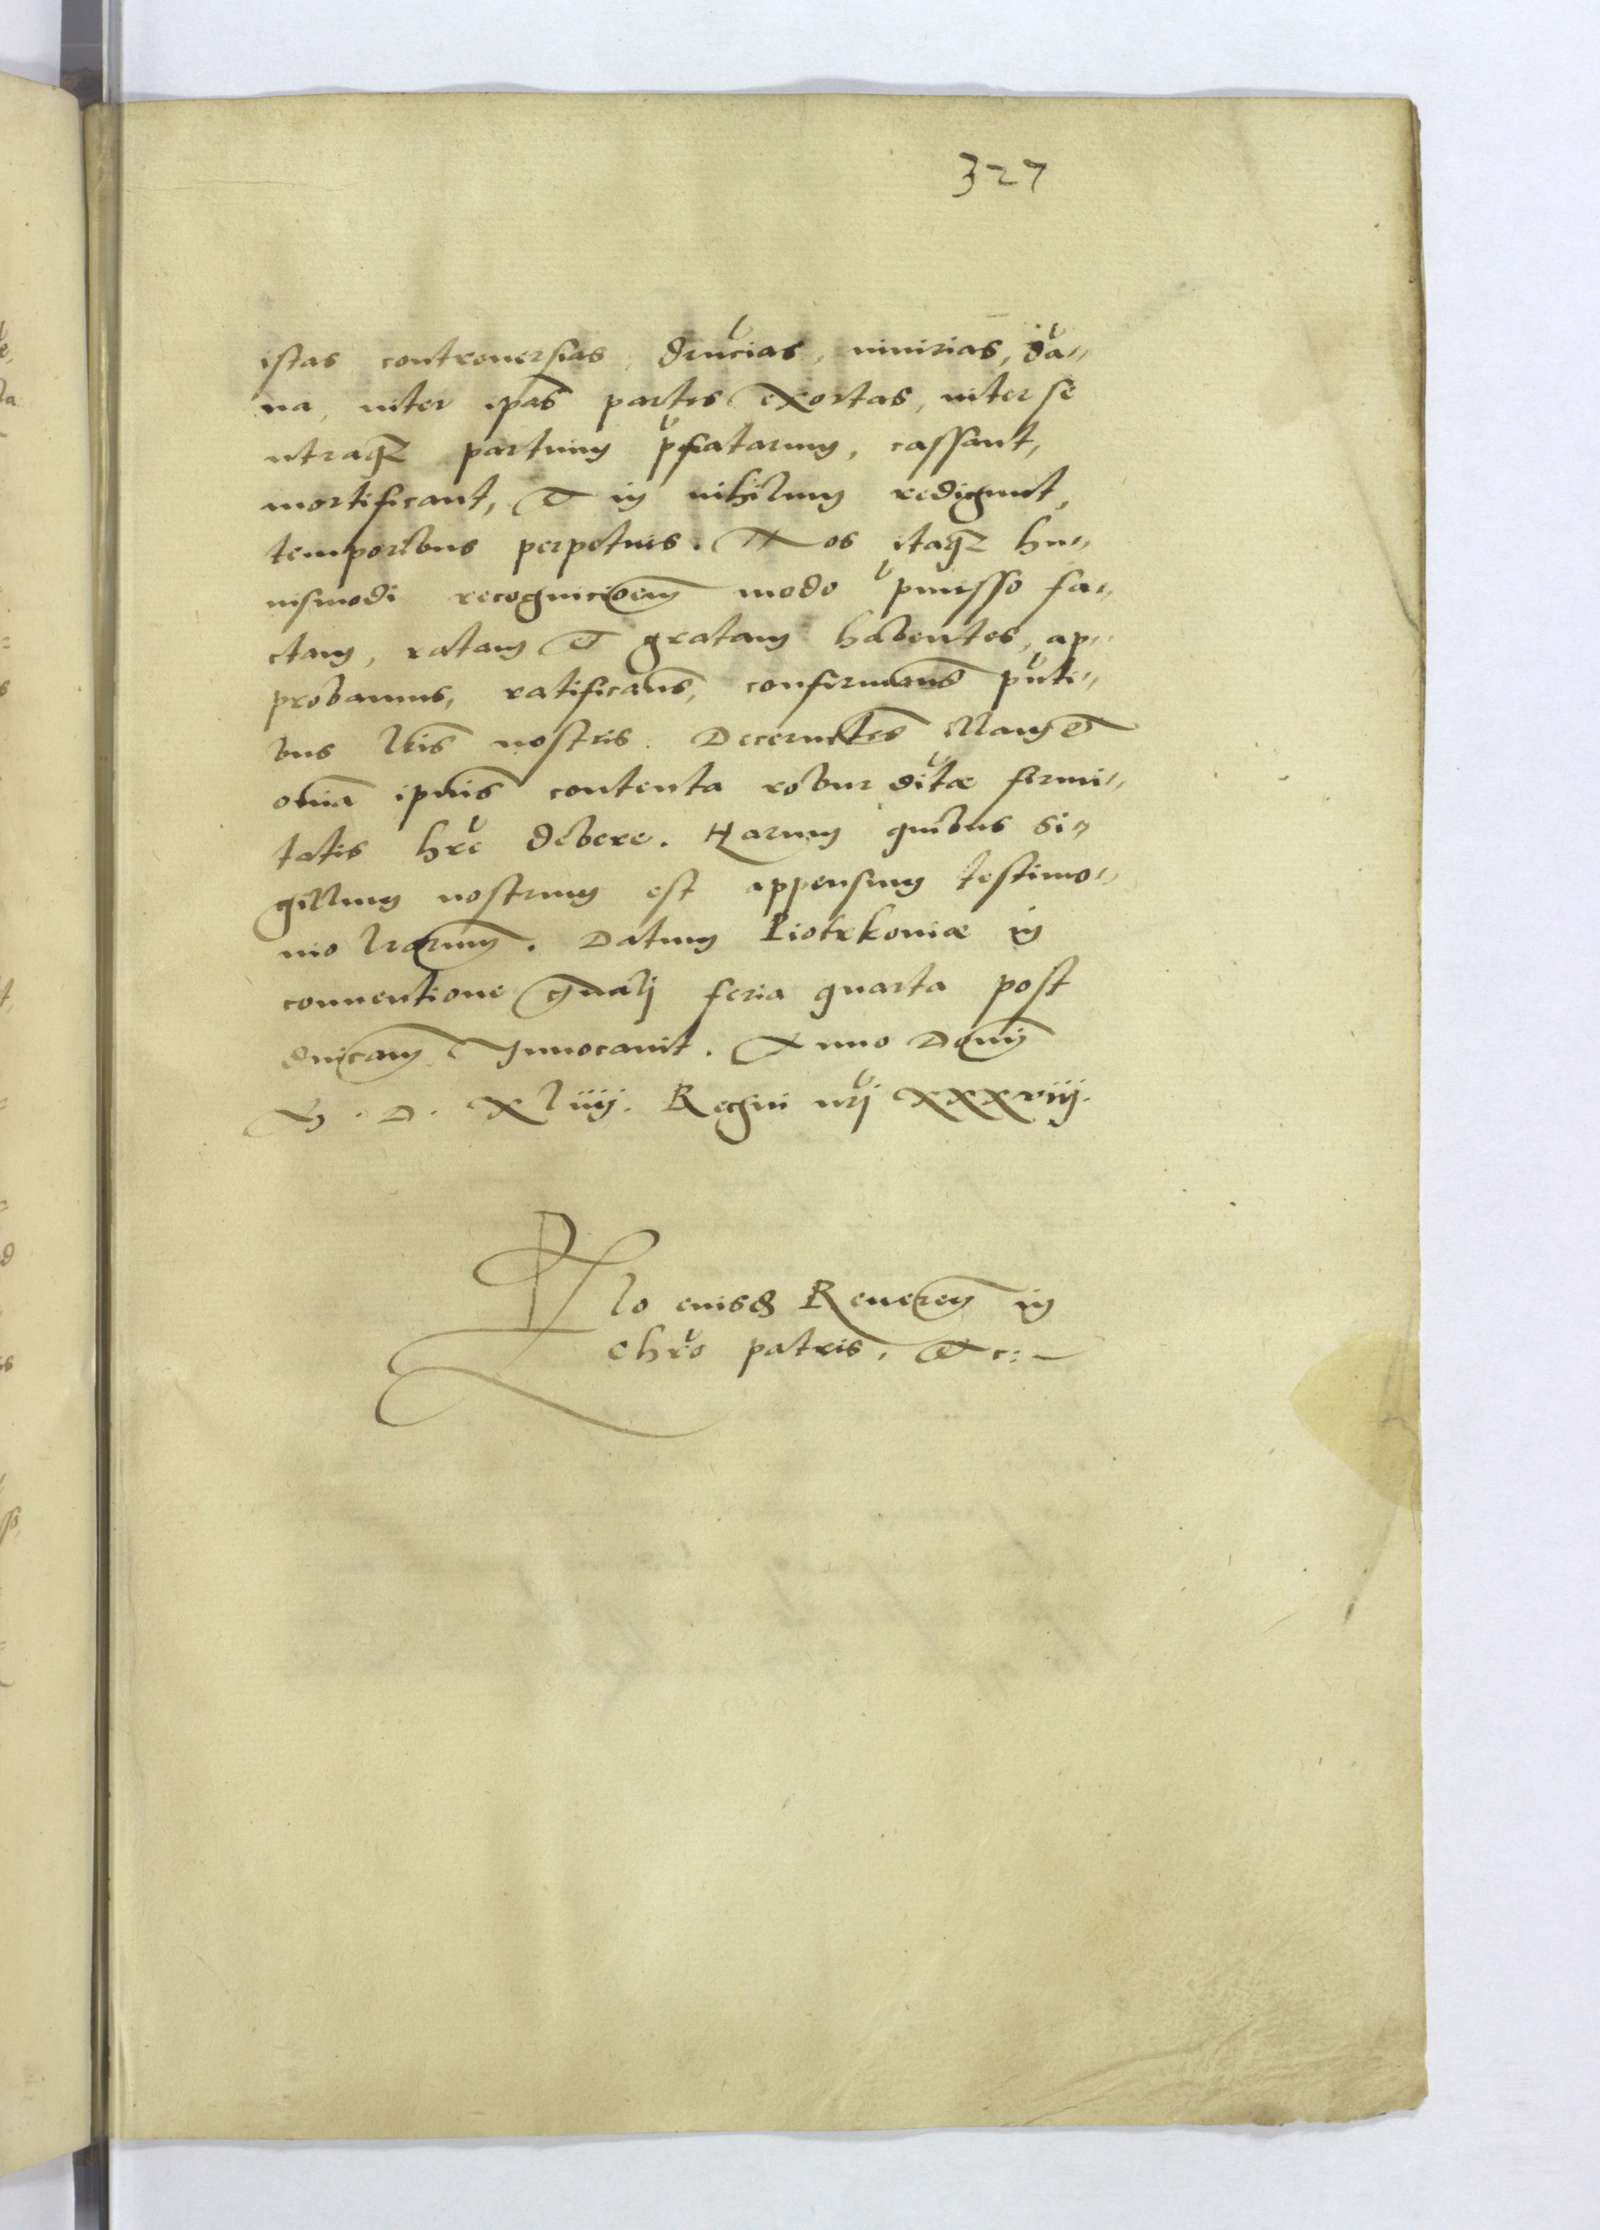 327
istas controuersias, dnũcias, iniurias, dã„
na, inter ipãs partes exortas, inter se
utraqz partium pfatarum, cassant,
mortificant, et in nihilum redigunt,
temporibus perpetuis. Nos itaqz hu„
iusmodi recognicioem modo pmisso fa„
ctam, ratam et gratam habentes, ap„
probamus, ratificams, confirmams pñti„
bus lris nostris. Decernctes illam et
omia ipius contenta robur ditæ firmi„
tatis hre debere. Harum quibus si„
gillum nostrum est appensum testimo„
nio lrarum. Datum Piotrkoniæ in
conuentione gnalj feria quarta post
dnicam Inuocauit. Anno Domj
M. D. Xliiij. Regni nrj xxxviij.
Rlo eiusd Reueren in
Chro patris, Etc: —